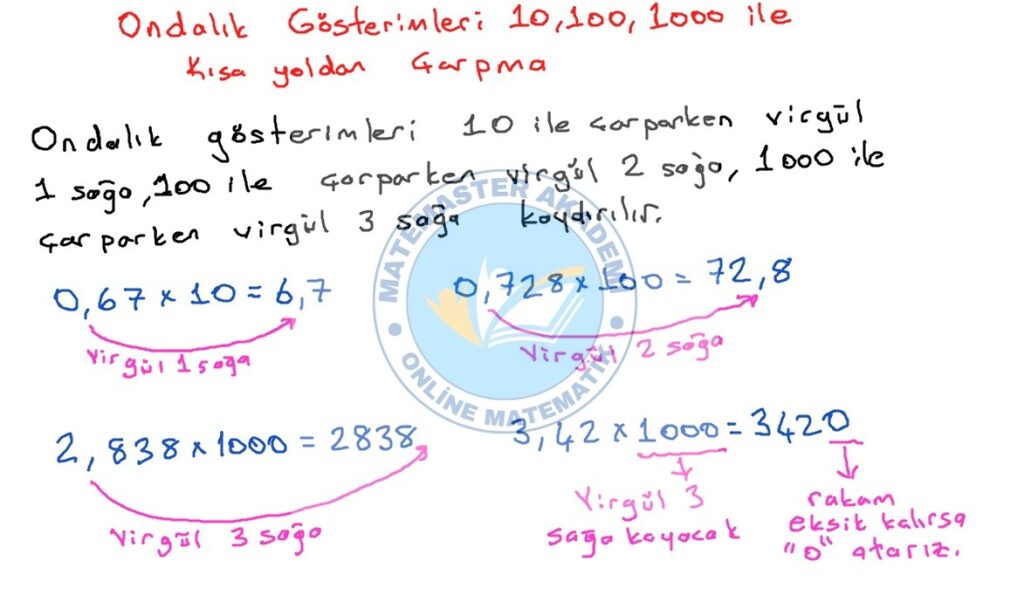 Ondalık Gösterimleri 10,100,1000 ile
Kısa yoldan Çarpma
Ondalık gösterimleri 10 ile çarparken virgül
1 sağa,100 ile çarparken virgül 2 sağa, 1000 ile
çarparken virgül 3 sağa kaydırılır.
0,67 x 10 = 6,7
Virgül 1 sağa
0,728 x 100 = 72,8
Virgül 2 sağa
2,838 x 1000 = 2838
Virgül 3 sağa
3,42 x 1000 = 3420
Virgül 3
sağa kayacak
rakam
eksik kalırsa
"0" atarız.
MATEMASTER AKADEMİ
ONLİNE MATEMATİK